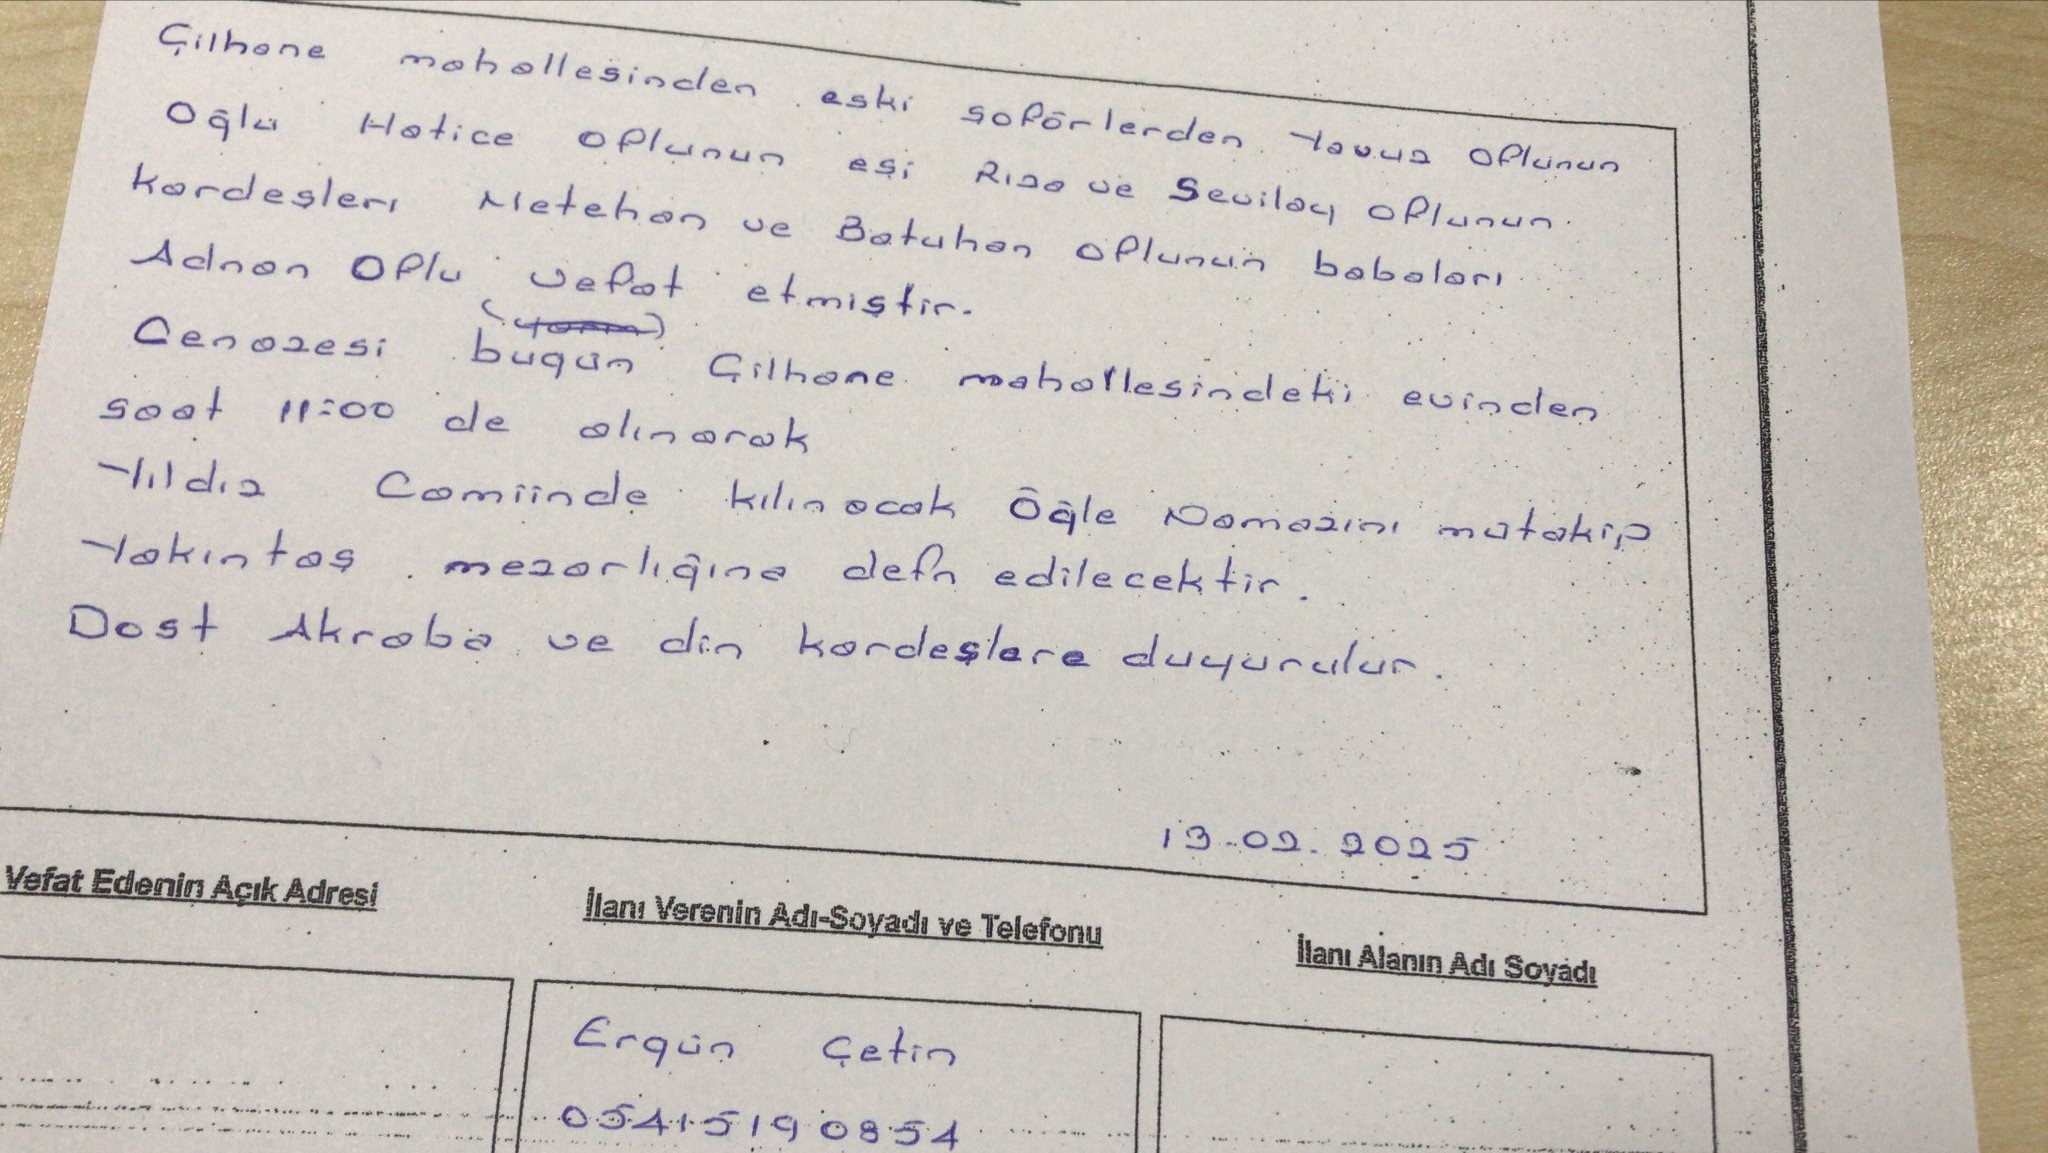 Çilhane mahallesinden eski şoförlerden Yavuz Oflunun
Oğlu Hatice Oflunun eşi Rıza ve Sevilay Oflunun
kardeşleri Metehan ve Batuhan Oflunun babaları
Adnan Oflu vefat etmiştir.
Cenazesi bugün Çilhane mahallesindeki evinden
saat 11:00 de alınarak
Yıldız Camiinde kılınacak Öğle Namazını mütakip
Yakıntaş mezarlığına defn edilecektir.
Dost Akraba ve din kardeşlere duyurulur.
13.02.2025
Vefat Edenin Açık Adresi
İlanı Verenin Adı-Soyadı ve Telefonu
İlanı Alanın Adı Soyadı
Ergün Çetin
05415190854